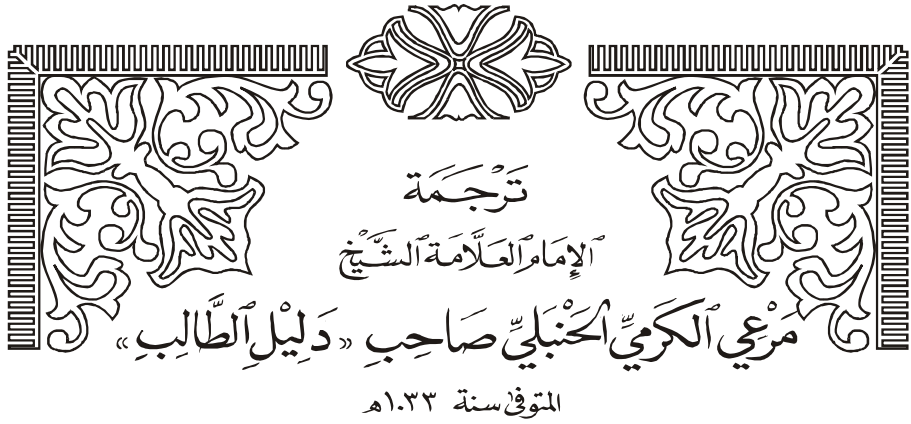 تَرْجَمَة
الإِمَامِ العَلَّامَة الشَّيْخ
مَرْعِي الكَرَمِيِّ الحَنْبَلِيِّ صَاحِبِ «دَلِيْلِ الطَّالِبِ»
المتوفى سنة ١٠٣٣هـ